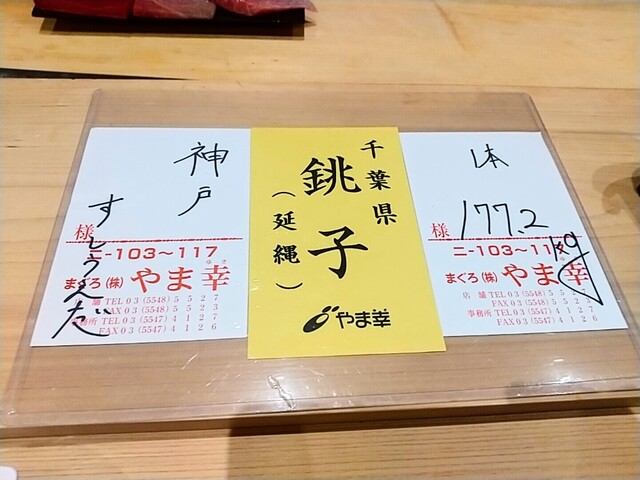 神戸
すしうえだ
様
ニ-103〜117
まぐろ(株)やま幸
店舗 TEL 03 (5548) 5527
FAX 03 (5548) 5523
事務所 TEL 03 (5547) 4127
FAX 03 (5547) 4126
千葉県
銚子
(延縄)
やま幸
1本
177.2
様
ニ-103〜11
まぐろ(株)やま幸
店舗 TEL 03 (5548) 5527
FAX 03 (5548) 5523
事務所 TEL 03 (5547) 4127
FAX 03 (5547) 4126